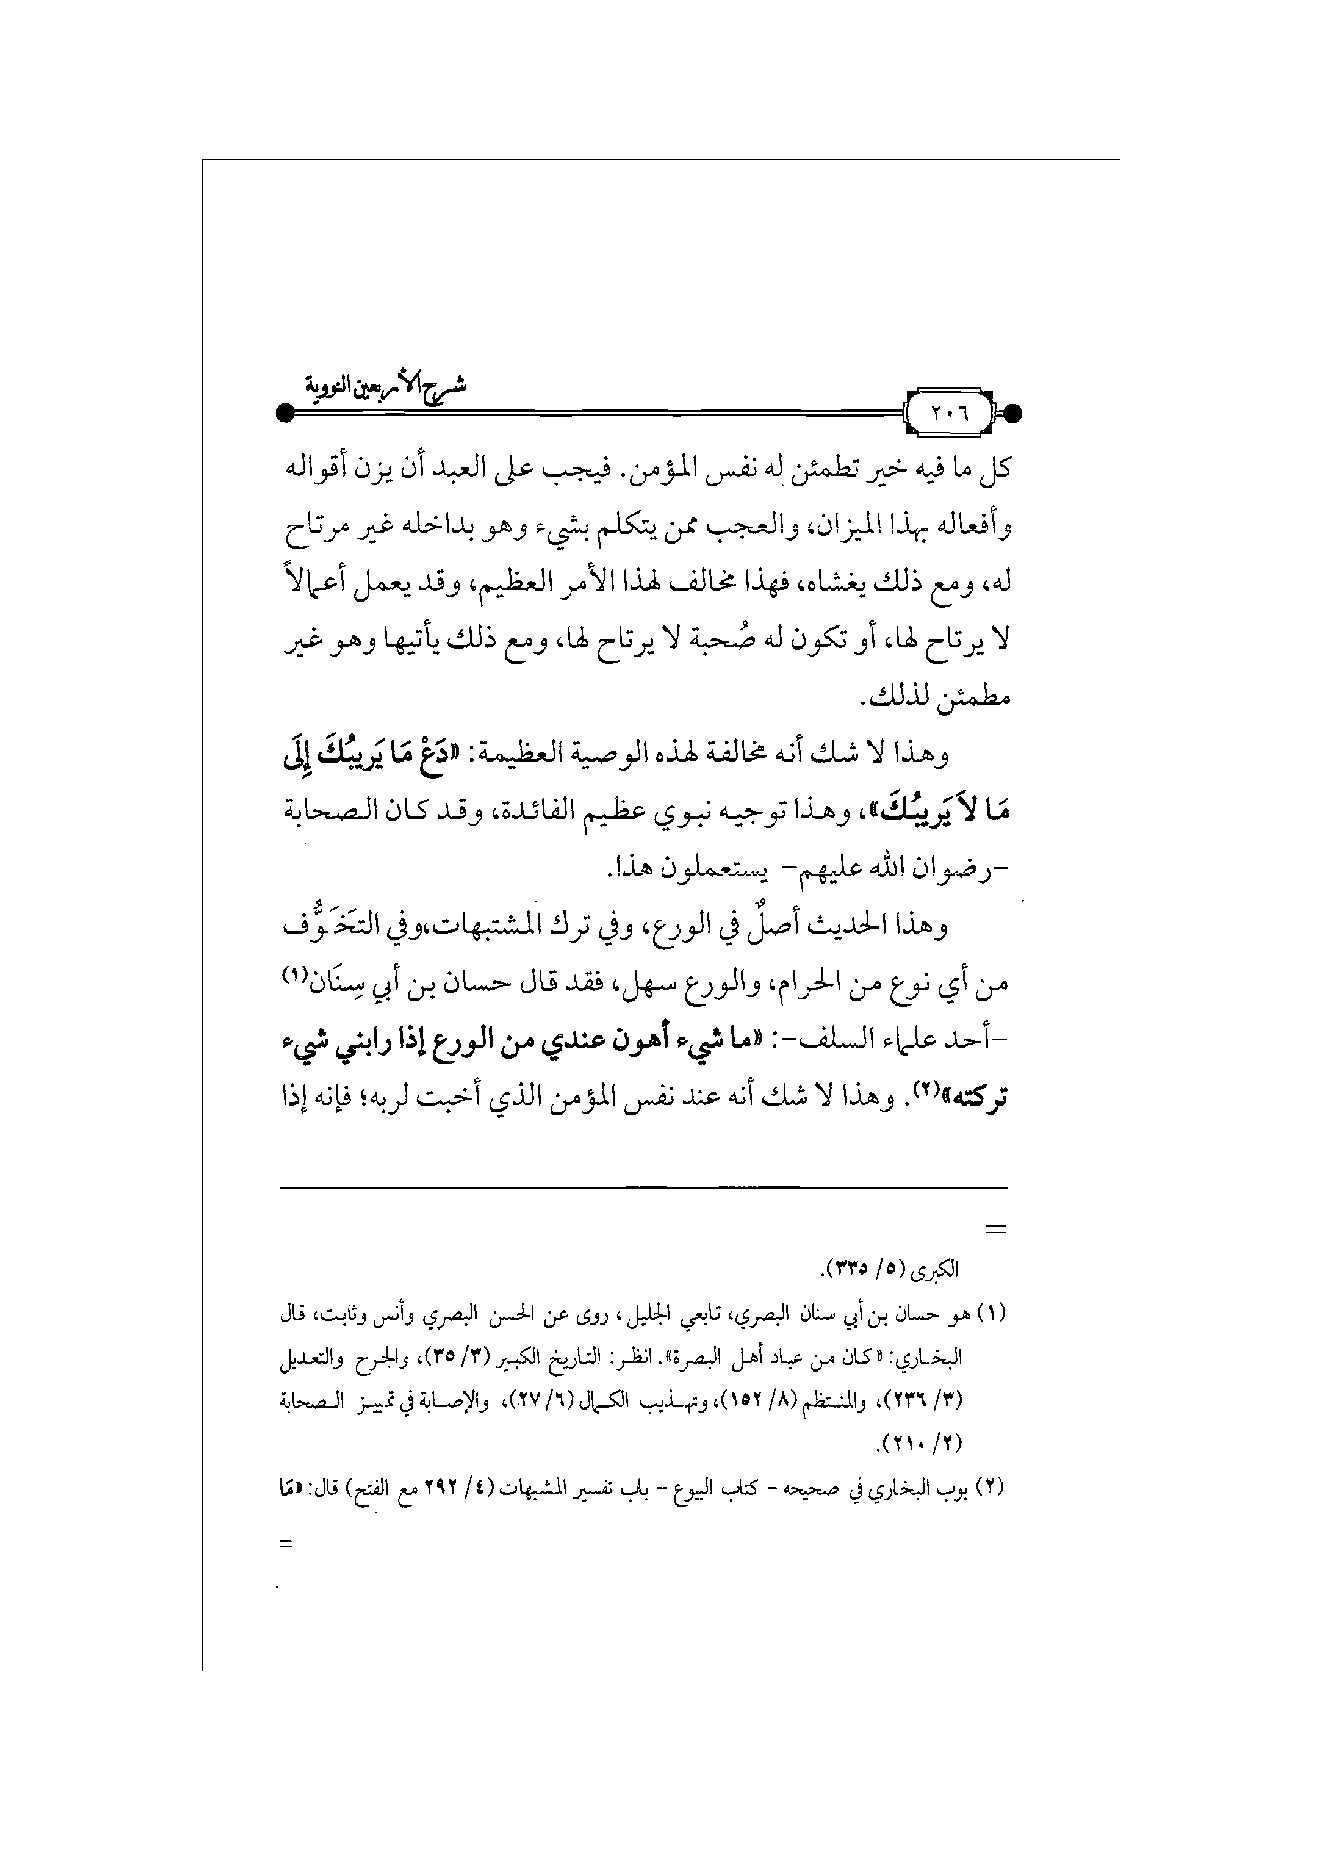 شرح الأربعين النووية
٢٠٦
كل ما فيه خير تطمئن له نفس المؤمن. فيجب على العبد أن يزن أقواله
وأفعاله بهذا الميزان، والعجب ممن يتكلم بشيء وهو بداخله غير مرتاح
له، ومع ذلك يغشاه، فهذا مخالف لهذا الأمر العظيم، وقد يعمل أعمالاً
لا يرتاح لها، أو تكون له صُحبة لا يرتاح لها، ومع ذلك يأتيها وهو غير
مطمئن لذلك.
وهذا لا شك أنه مخالفة لهذه الوصية العظيمة: «دَعْ مَا يَرِيبُكَ إِلَى
مَا لاَ يَرِيبُكَ»، وهذا توجيه نبوي عظيم الفائدة، وقد كان الصحابة
-رضوان الله عليهم- يستعملون هذا.
وهذا الحديث أصلٌ في الورع، وفي ترك المشتبهات،وفي التخَوُّف
من أي نوع من الحرام، والورع سهل، فقد قال حسان بن أبي سِنَان(١)
-أحد علماء السلف-: «ما شيء أهون عندي من الورع إذا رابني شيء
تركته»(٢). وهذا لا شك أنه عند نفس المؤمن الذي أخبت لربه؛ فإنه إذا
=
الكبرى (٥/ ٣٣٥).
(١) هو حسان بن أبي سنان البصري، تابعي الجليل، روى عن الحسن البصري وأنس وثابت، قال
البخاري: «كان من عباد أهل البصرة». انظر: التاريخ الكبير (٣/ ٣٥)، والجرح والتعديل
(٣/ ٢٣٦)، والمنتظم (٨/ ١٥٢)، وتهذيب الكمال (٦/ ٢٧)، والإصابة في تمييز الصحابة
(٢/ ٢١٠).
(٢) بوب البخاري في صحيحه - كتاب البيوع - باب تفسير المشبهات (٤/ ٢٩٢ مع الفتح) قال: «مَا
=